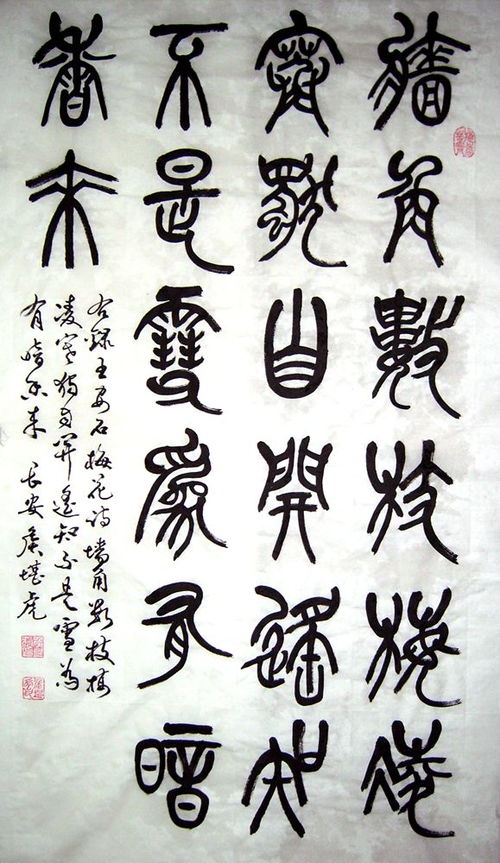 牆角數枝梅凌
寒獨自開遙知
不是雪為有暗
香來
右錄王安石梅花詩墻角數枝梅
凌寒獨自開遙知不是雪為
有暗香來 長安